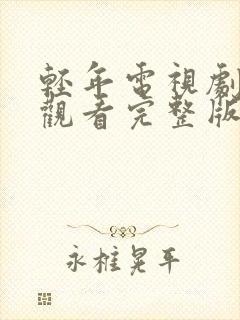 輕年電視劇
觀看完整版
永樁晃平